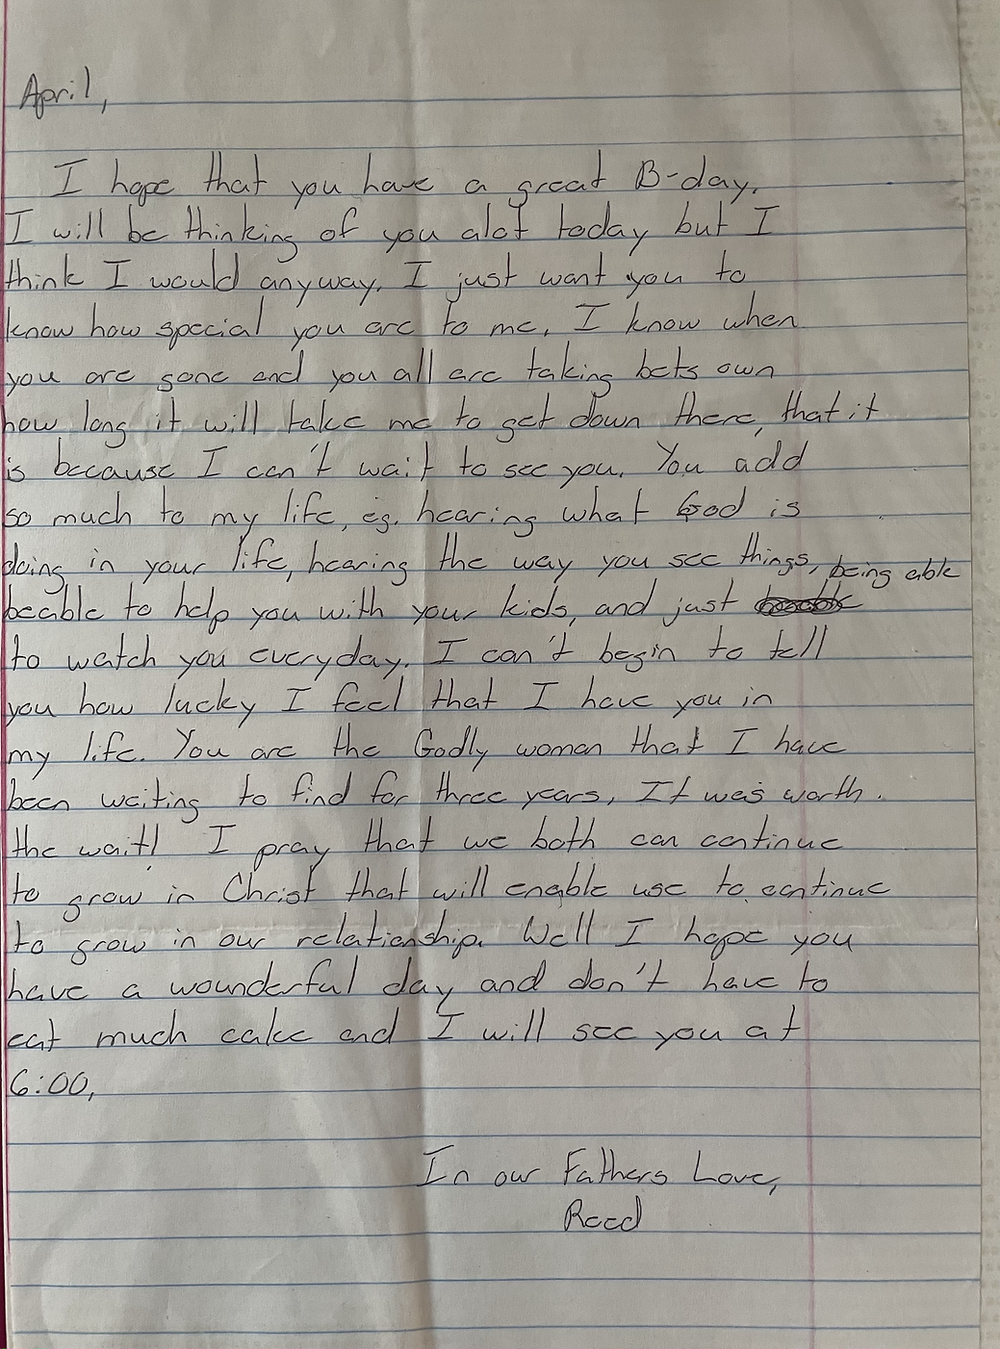 April,
I hope that you have a great B-day.
I will be thinking of you alot today but I
think I would anyway. I just want you to
know how special you are to me. I know when
you are gone and you all are taking bets own
how long it will take me to get down there, that it
is because I can't wait to see you. You add
so much to my life, eg. hearing what God is
doing in your life, hearing the way you see things, being able
beable to help you with your kids, and just
to watch you everyday. I can't begin to tell
you how lucky I feel that I have you in
my life. You are the Godly woman that I have
been waiting to find for three years. It was worth
the wait! I pray that we both can continue
to grow in Christ that will enable use to continue
to grow in our relationship. Well I hope you
have a wounderful day and don't have to
eat much cake and I will see you at
6:00,
In our Fathers Love,
Reed